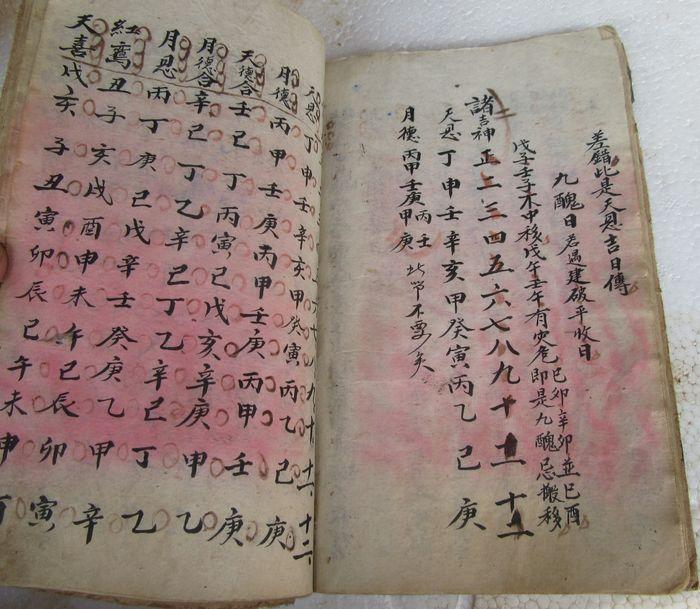 差錯此是天恩吉日傳
九醜日若遇建破平收日
己卯辛卯並己酉
戊子壬子木中移戊午壬午有災危即是九醜忌搬移
諸吉神正二三四五六七八九十十一十二
天恩丁申壬辛亥甲癸寅丙乙巳庚
月德丙甲壬庚丙壬甲庚此節不要矣
九十十一十二
天恩丁申壬辛亥甲癸寅丙乙巳庚
月德丙甲壬庚丙甲壬庚丙甲壬庚
天德合壬巳丁丙寅己戊亥辛庚申乙
月德合辛己丁乙辛己丁乙辛己丁乙
月恩丙丁庚己戊辛壬癸庚乙甲辛
紅鸞丑子亥戌酉申未午巳辰卯寅
天喜戌亥子丑寅卯辰巳午未申